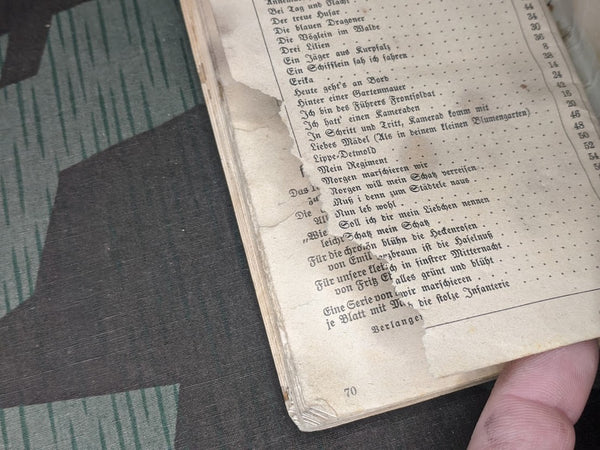 Bei Tag und Nacht
Der treue Husar
Die blauen Dragoner
Die Vöglein im Walde
Drei Lilien
Ein Jäger aus Kurpfalz
Ein Schifflein sah ich fahren
Erika
Heute geht's an Bord
Hinter einer Gartenmauer
Ich bin des Führers Frontsoldat
Ich hatt' einen Kameraden
In Schritt und Tritt, Kamerad komm mit
Liebes Mädel (Als in deinem kleinen Blumengarten)
Lippe-Detmold
Mein Regiment
Morgen marschieren wir
Morgen will mein Schatz verreisen
Muß i denn zum Städtele naus
Nun leb wohl
Soll ich dir mein Liebchen nennen
Schatz mein Schatz
blühn die Heckenrosen
braun ist die Haselnuß
in finstrer Mitternacht
alles grünt und blüht
wir marschieren
die stolze Infanterie
44
34
30
36
8
28
14
24
42
15
20
46
48
50
52
54
Das
zu
Die
"Wie
leicht
Für die
von Emil
Für unsere
von Fritz
Eine Serie von
je Blatt mit
Verlange
70